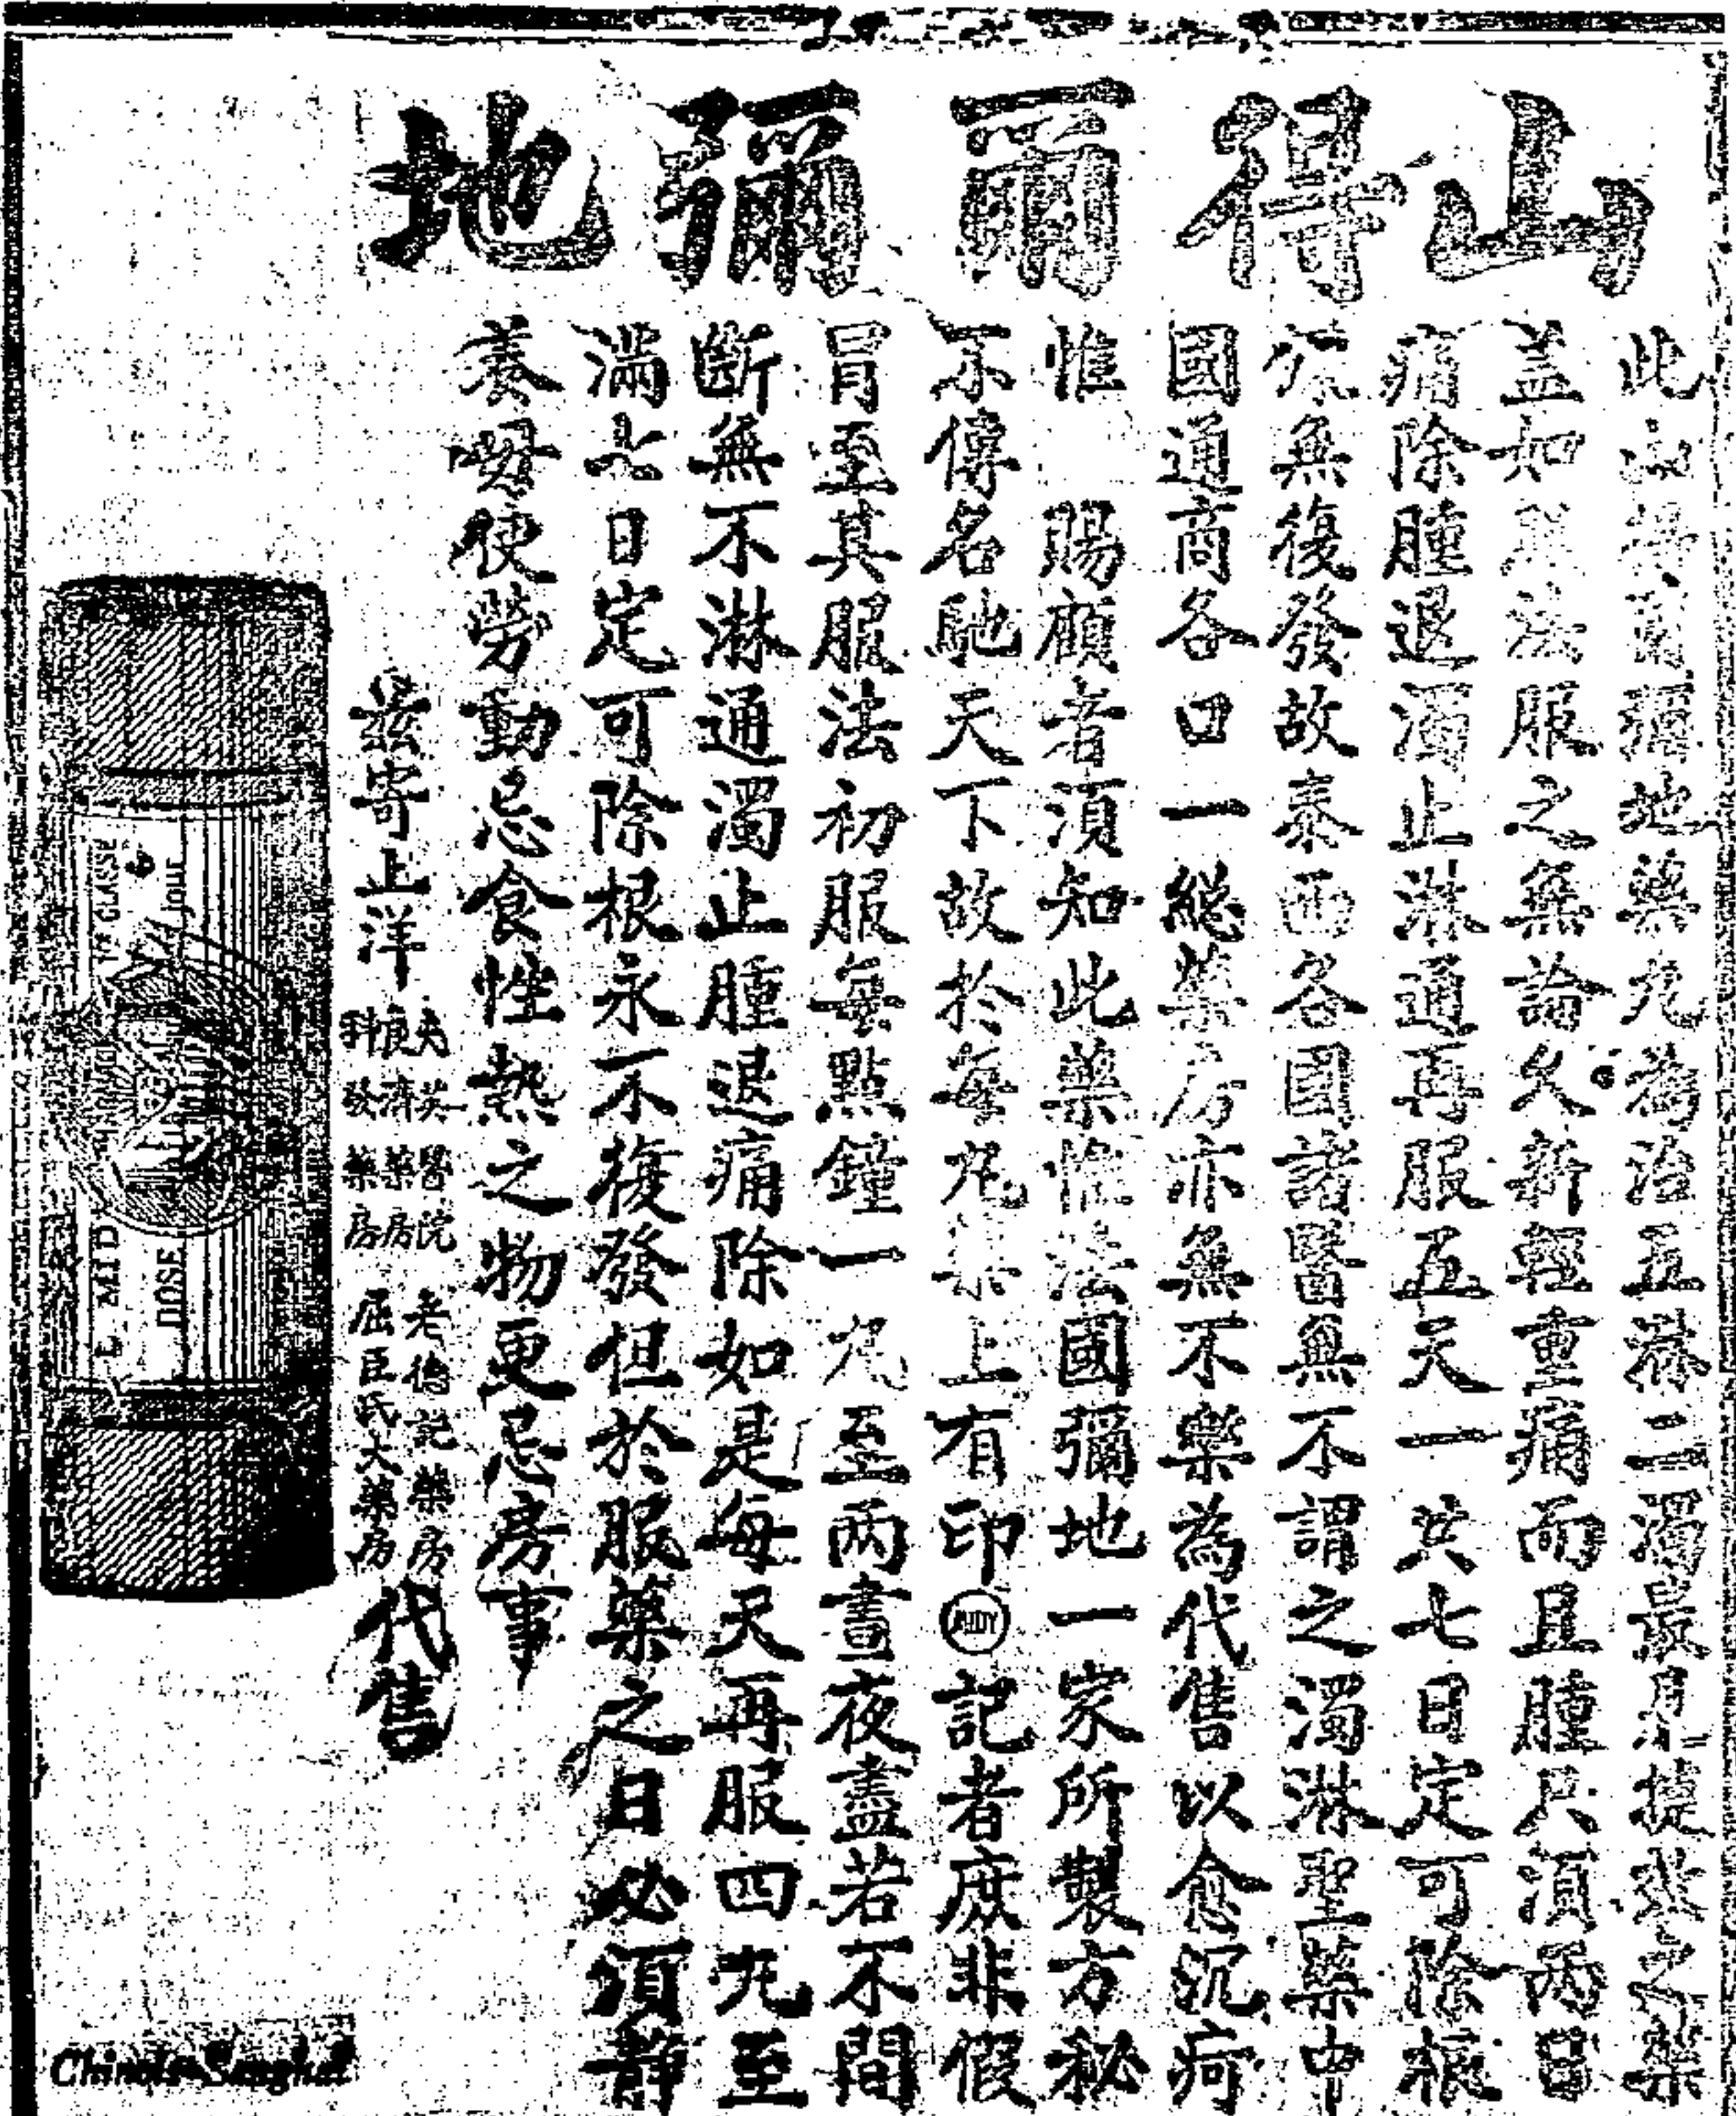 山得爾彌地
此山得爾彌地藥丸為治五淋二濁最見捷效之藥
盖如照法服之無論久新輕重痛而且腫只須兩日
痛除腫退濁止淋通再服五天一共七日定可除根
永無復發故泰西各國諸醫無不謂之濁淋聖藥中
國通商各口一總藥房亦無不樂為代售以愈沉疴
惟 賜顧者須知此藥惟法國彌地一家所製方秘
不傳名馳天下故於每丸藥上有印MIDY記者庶非假
冒至其服法初服每點鐘一丸至兩晝夜盡若不間
斷無不淋通濁止腫退痛除如是每天再服四丸至
滿七日定可除根永不復發但於服藥之日必須靜
養毋使勞動忌食性熱之物更忌房事
茲寄上洋
大英醫院
科發藥房
老德記藥房
屈臣氏大藥房
代售
1re CLASSE
L. MIDY
DOSE
JOUR
Chinois-Sanghai